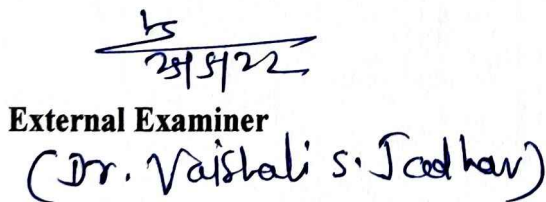 External Examiner
(Dr. Vaishali S. Jadhav)